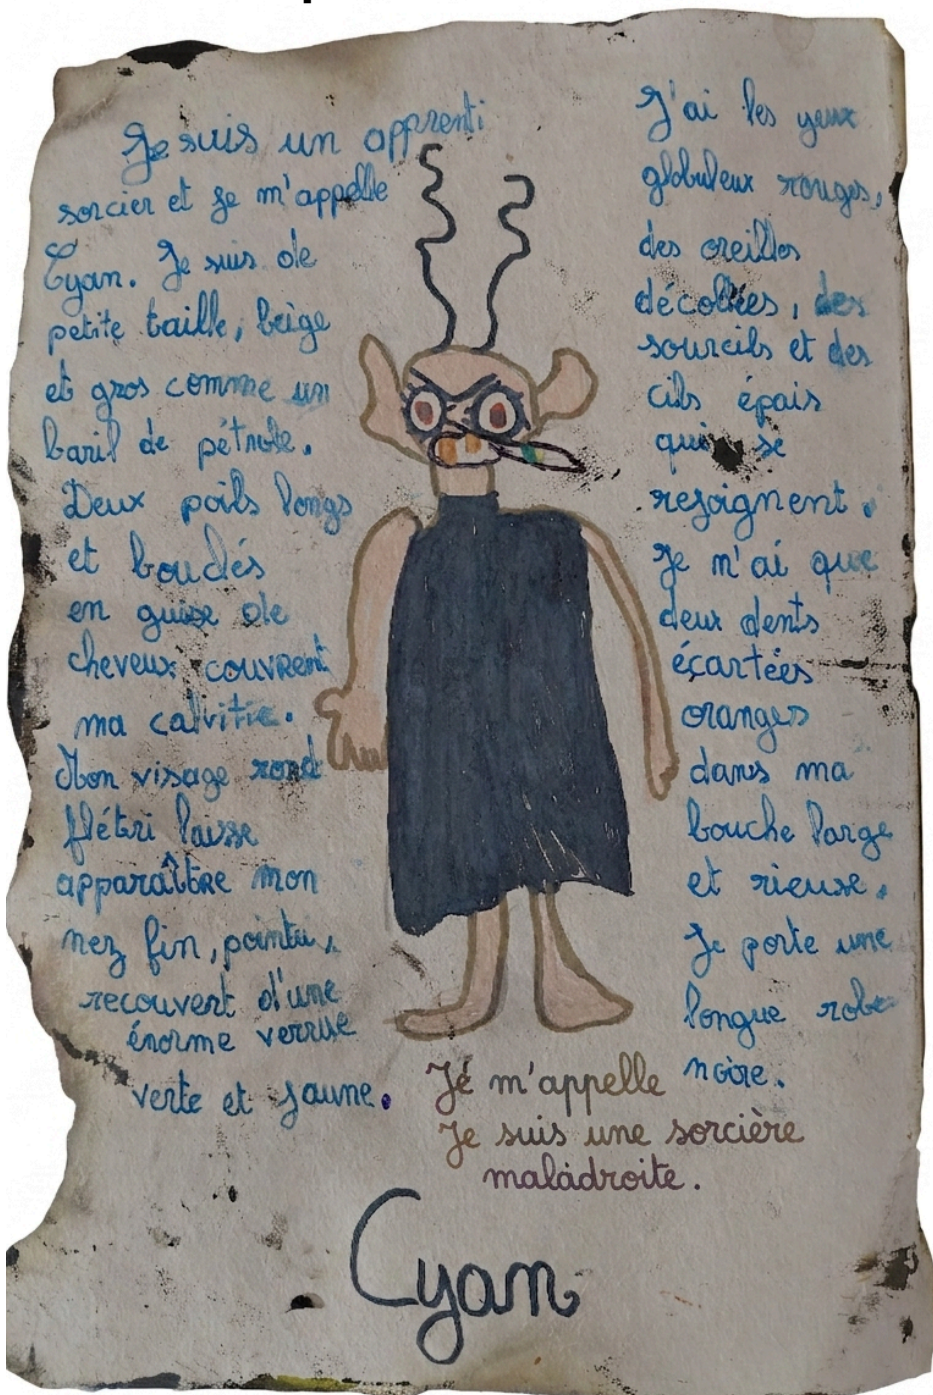 Je suis un apprenti
sorcier et je m'appelle
Cyan. Je suis de
petite taille, beige
et gros comme un
baril de pétrole.
Deux poils longs
et bouclés
en guise de
cheveux couvrent
ma calvitie.
Mon visage rond
flétri laisse
apparaître mon
nez fin, pointu,
recouvert d'une
énorme verrue
verte et jaune.
J'ai les yeux
globuleux rouges,
des oreilles
décollées, des
sourcils et des
cils épais
qui se
rejoignent.
Je n'ai que
deux dents
écartées
oranges
dans ma
bouche large
et rieuse.
Je porte une
longue robe
noire.
Je m'appelle
Je suis une sorcière
maladroite.
Cyan